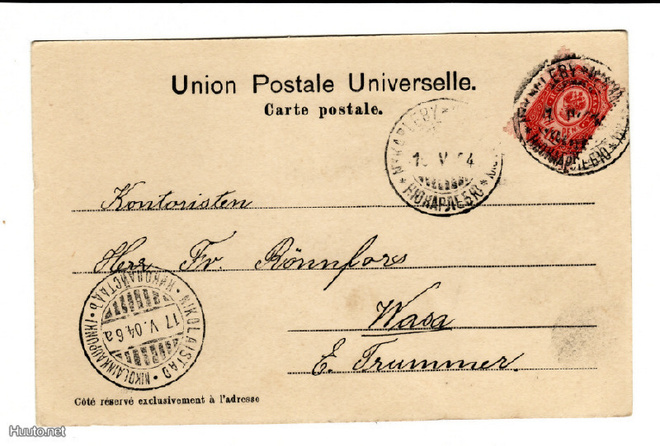 Union Postale Universelle.
Carte postale.
NYKARLEBY
НЮКАРЛЕБЮ
V
Kontoristen
Herr Fr. Rönnfors
Wasa
E. Trummer
NIKOLAISTAD • NIKOLAINKAUPUNKI • НИКОЛАЙСТАДЪ
17.V.04 6a
Côté réservé exclusivement à l'adresse
Huuto.net